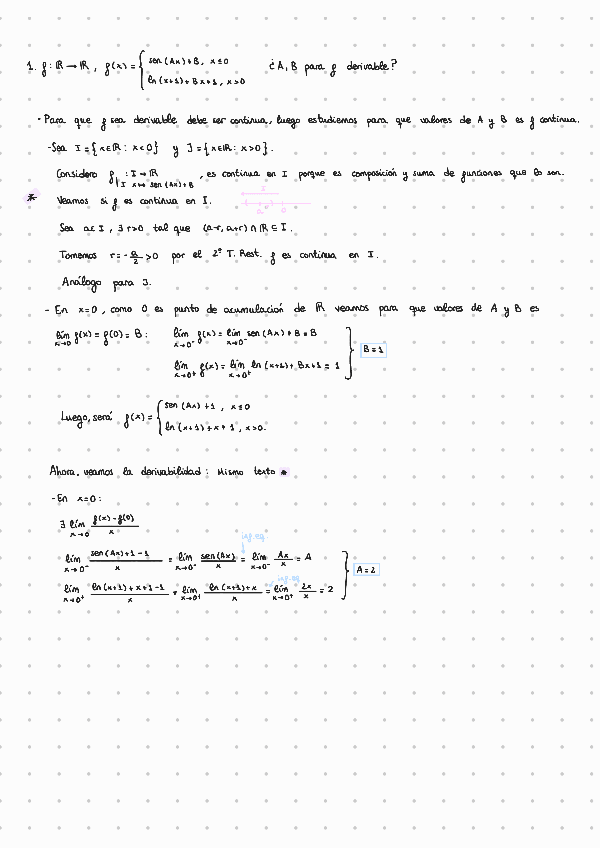 1. f: ℝ → ℝ, f(x) = { sen(Ax)+B, x ≤ 0
ln(x+1)+Bx+1, x>0
¿A, B para f derivable?
- Para que f sea derivable debe ser continua, luego estudiemos para que valores de A y B es f continua.
- Sea I = {x∈ℝ : x<0} y J = {x∈ℝ : x>0}.
Considero f|I : I → ℝ , es continua en I porque es composición y suma de funciones que lo son.
x ↦ sen(Ax)+B
I
* Veamos si f es continua en I.
a 0
Sea a∈I, ∃ r>0 tal que (a-r, a+r) ∩ ℝ ⊆ I.
Tomemos r = -a/2 > 0 por el 2º T. Rest. f es continua en I.
Análogo para J.
- En x=0, como 0 es punto de acumulación de ℝ veamos para que valores de A y B es
lím x→0 f(x) = f(0) = B : lím x→0⁻ f(x) = lím x→0⁻ sen(Ax)+B = B
lím x→0⁺ f(x) = lím x→0⁺ ln(x+1)+Bx+1 = 1 } B=1
Luego, será f(x) = { sen(Ax)+1, x≤0
ln(x+1)+x+1, x>0.
Ahora, veamos la derivabilidad: Mismo texto *
- En x=0:
∃ lím x→0 (f(x)-f(0))/x
inf. eq.
lím x→0⁻ (sen(Ax)+1-1)/x = lím x→0⁻ sen(Ax)/x = lím x→0⁻ Ax/x = A
inf. eq.
lím x→0⁺ (ln(x+1)+x+1-1)/x = lím x→0⁺ (ln(x+1)+x)/x = lím x→0⁺ 2x/x = 2 } A=2